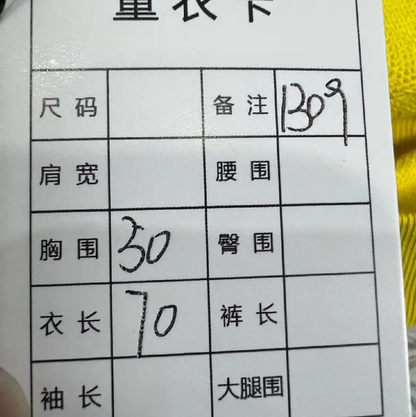 量衣卡
尺码 备注 130g
肩宽 腰围
胸围 50 臀围
衣长 70 裤长
袖长 大腿围